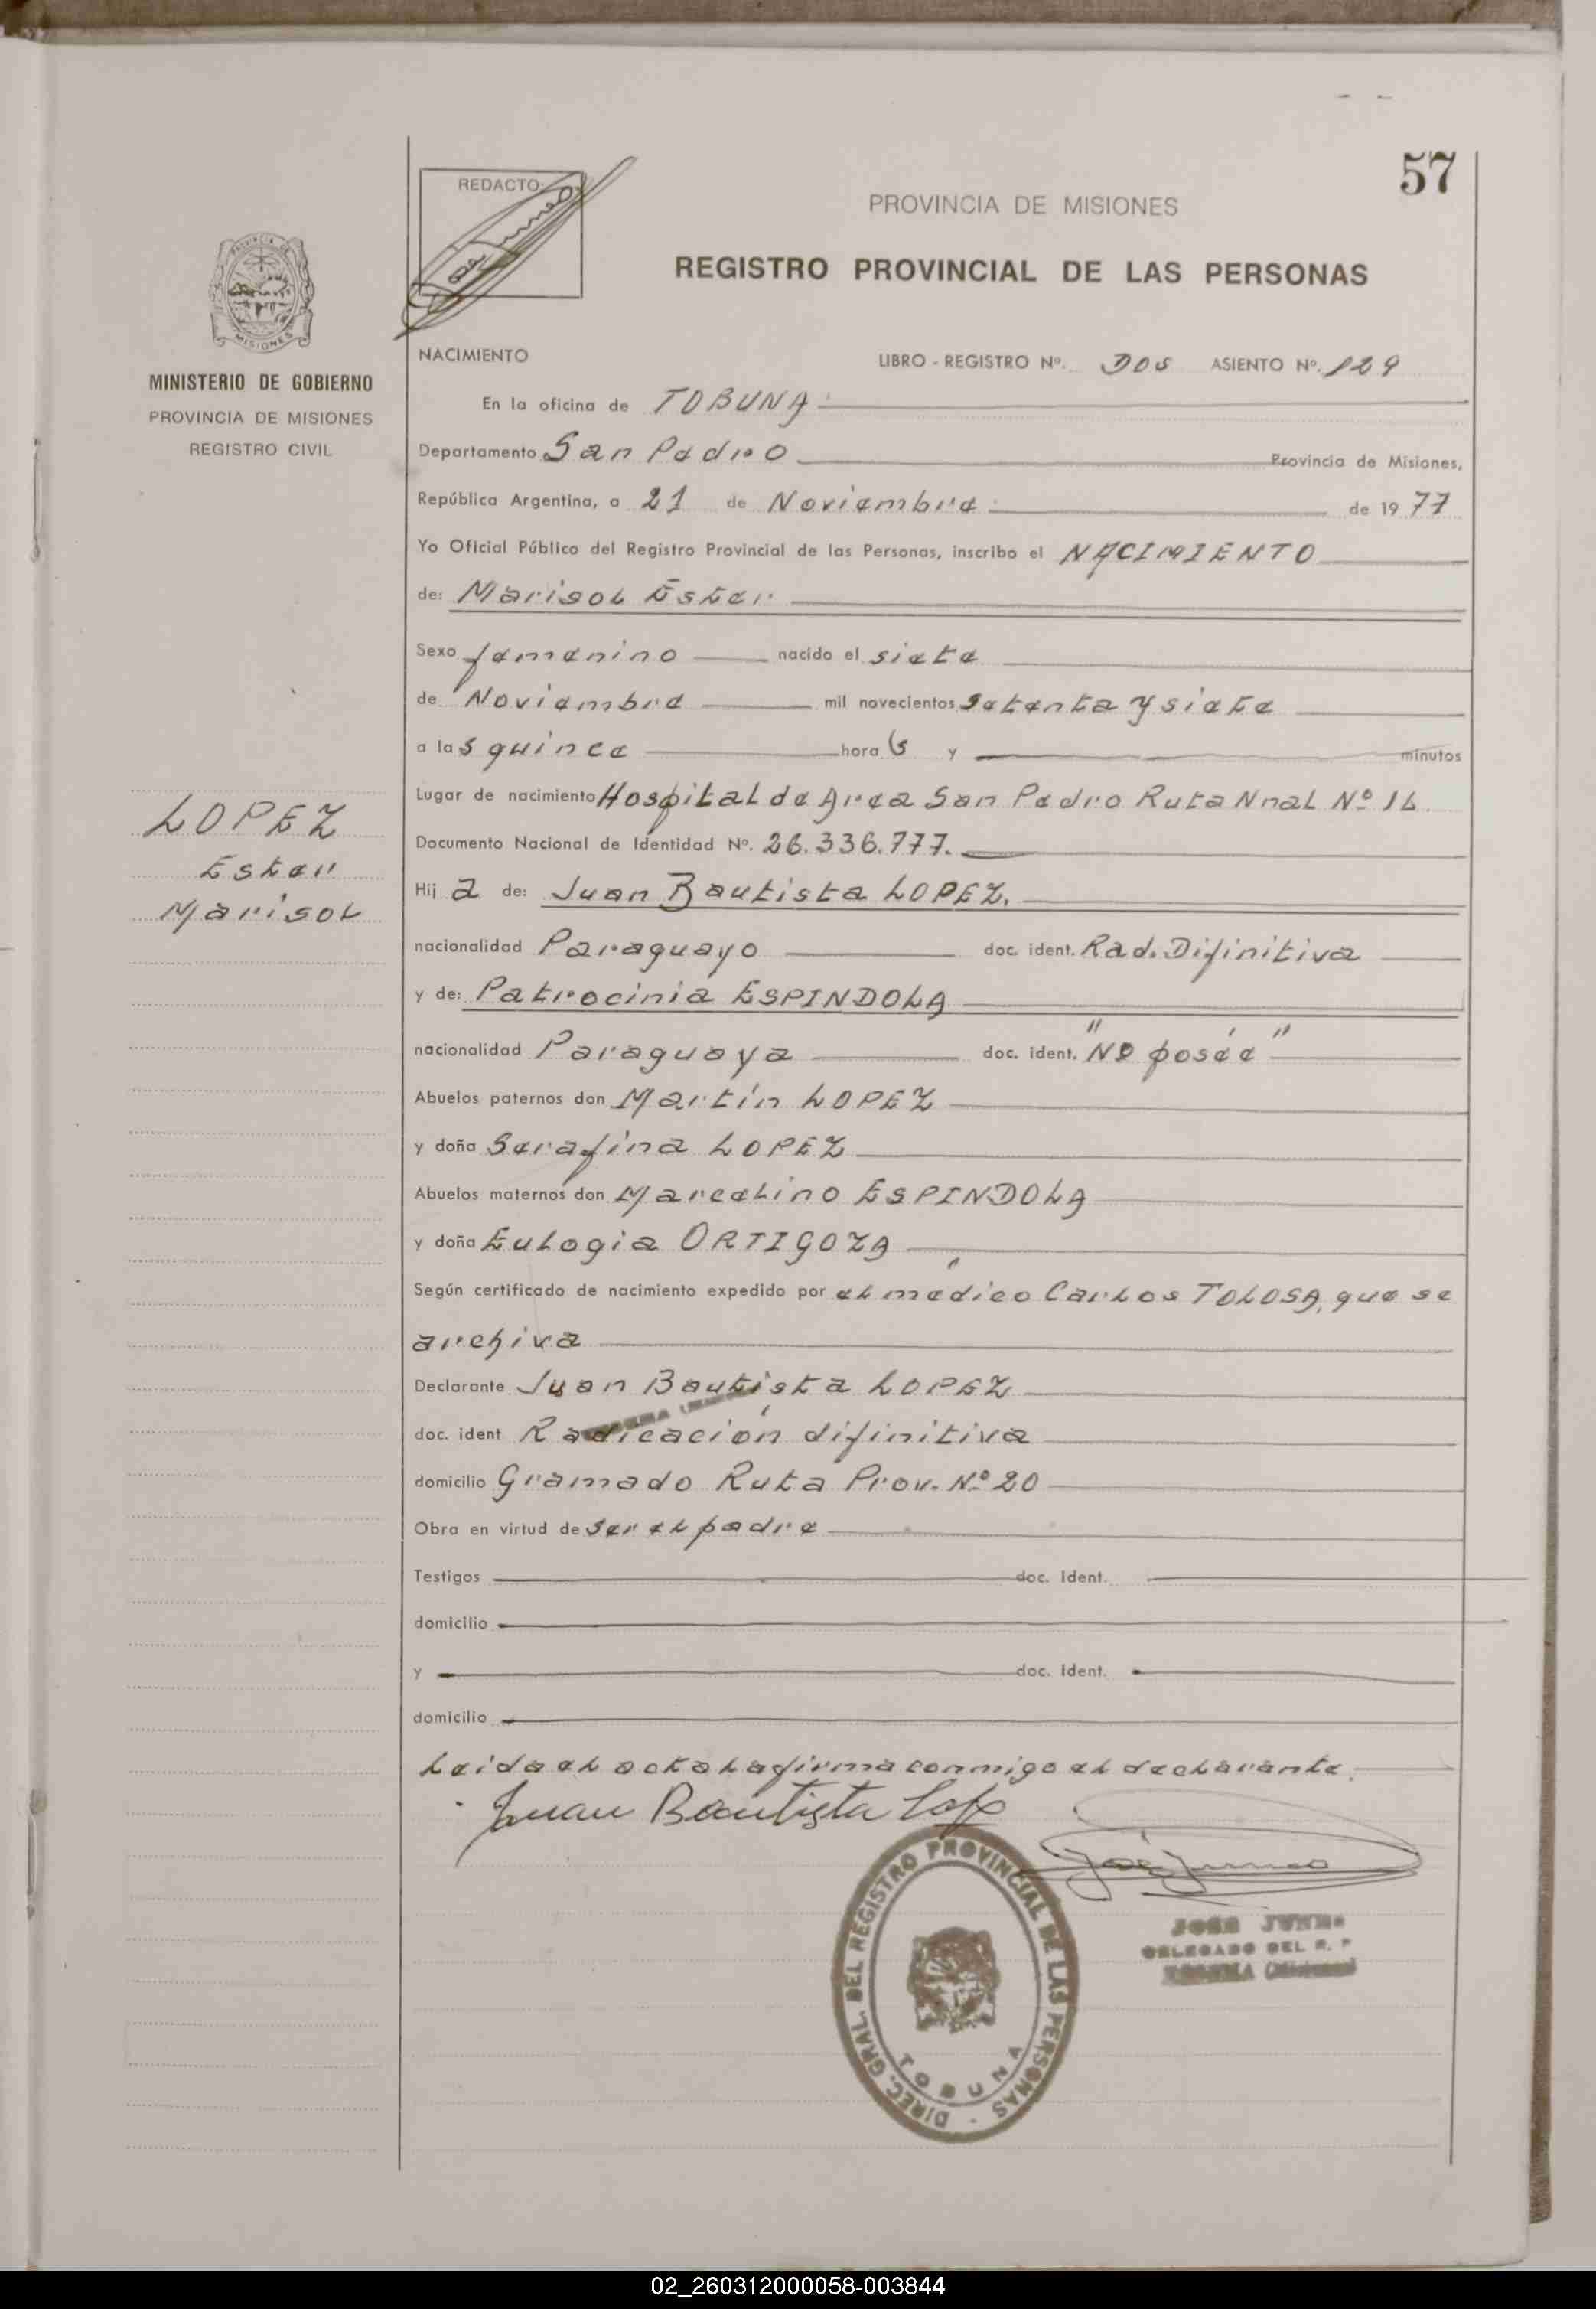 57
REDACTO:
PROVINCIA DE MISIONES
REGISTRO PROVINCIAL DE LAS PERSONAS
MINISTERIO DE GOBIERNO
PROVINCIA DE MISIONES
REGISTRO CIVIL
NACIMIENTO LIBRO - REGISTRO Nº. DOS ASIENTO Nº. 129
En la oficina de TOBUNA
Departamento San Pedro Provincia de Misiones,
República Argentina, a 21 de Noviembre de 1977
Yo Oficial Público del Registro Provincial de las Personas, inscribo el NACIMIENTO
de: Marisol Ester
Sexo femenino nacido el siete
de Noviembre mil novecientos setenta y siete
a las quince horas y minutos
Lugar de nacimiento Hospital de Area San Pedro Ruta Nnal Nº 14
Documento Nacional de Identidad Nº. 26.336.777.
LOPEZ
Ester
Marisol
Hija de: Juan Bautista LOPEZ.
nacionalidad Paraguayo doc. ident. Rad. Difinitiva
y de: Patrocinia ESPINDOLA
nacionalidad Paraguaya doc. ident. "NO poséé"
Abuelos paternos don Martín LOPEZ
y doña Serafina LOPEZ
Abuelos maternos don Marcelino ESPÍNDOLA
y doña Eulogia ORTIGOZA
Según certificado de nacimiento expedido por el médico Carlos TOLOSA, que se
archiva
Declarante Juan Bautista LOPEZ
doc. ident Radicación difinitiva
domicilio Gramado Ruta Prov. Nº 20
Obra en virtud de ser el padre
Testigos doc. Ident.
domicilio
y doc. Ident.
domicilio
Leida el acta la firma conmigo el declarante.
Juan Bautista
DIREC. GRAL. DEL REGISTRO PROVINCIAL DE LAS PERSONAS -
TOBUNA
JOSE
DELEGADO DEL R. P
TOBUNA (Misiones)
02_260312000058-003844